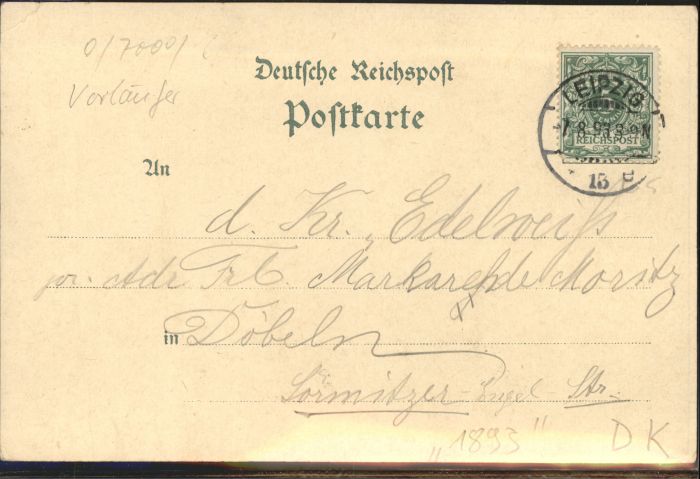 0/7000/
Vorläufer
Deutsche Reichspost
Postkarte
LEIPZIG
1.8.93.8-9N
REICHSPOST
13
An
d. Kr. „Edelweiß
pr. Adr. Frl. Markarethe Moritz
in Döbeln
Sörmitzer - Str.
„1893"
DK